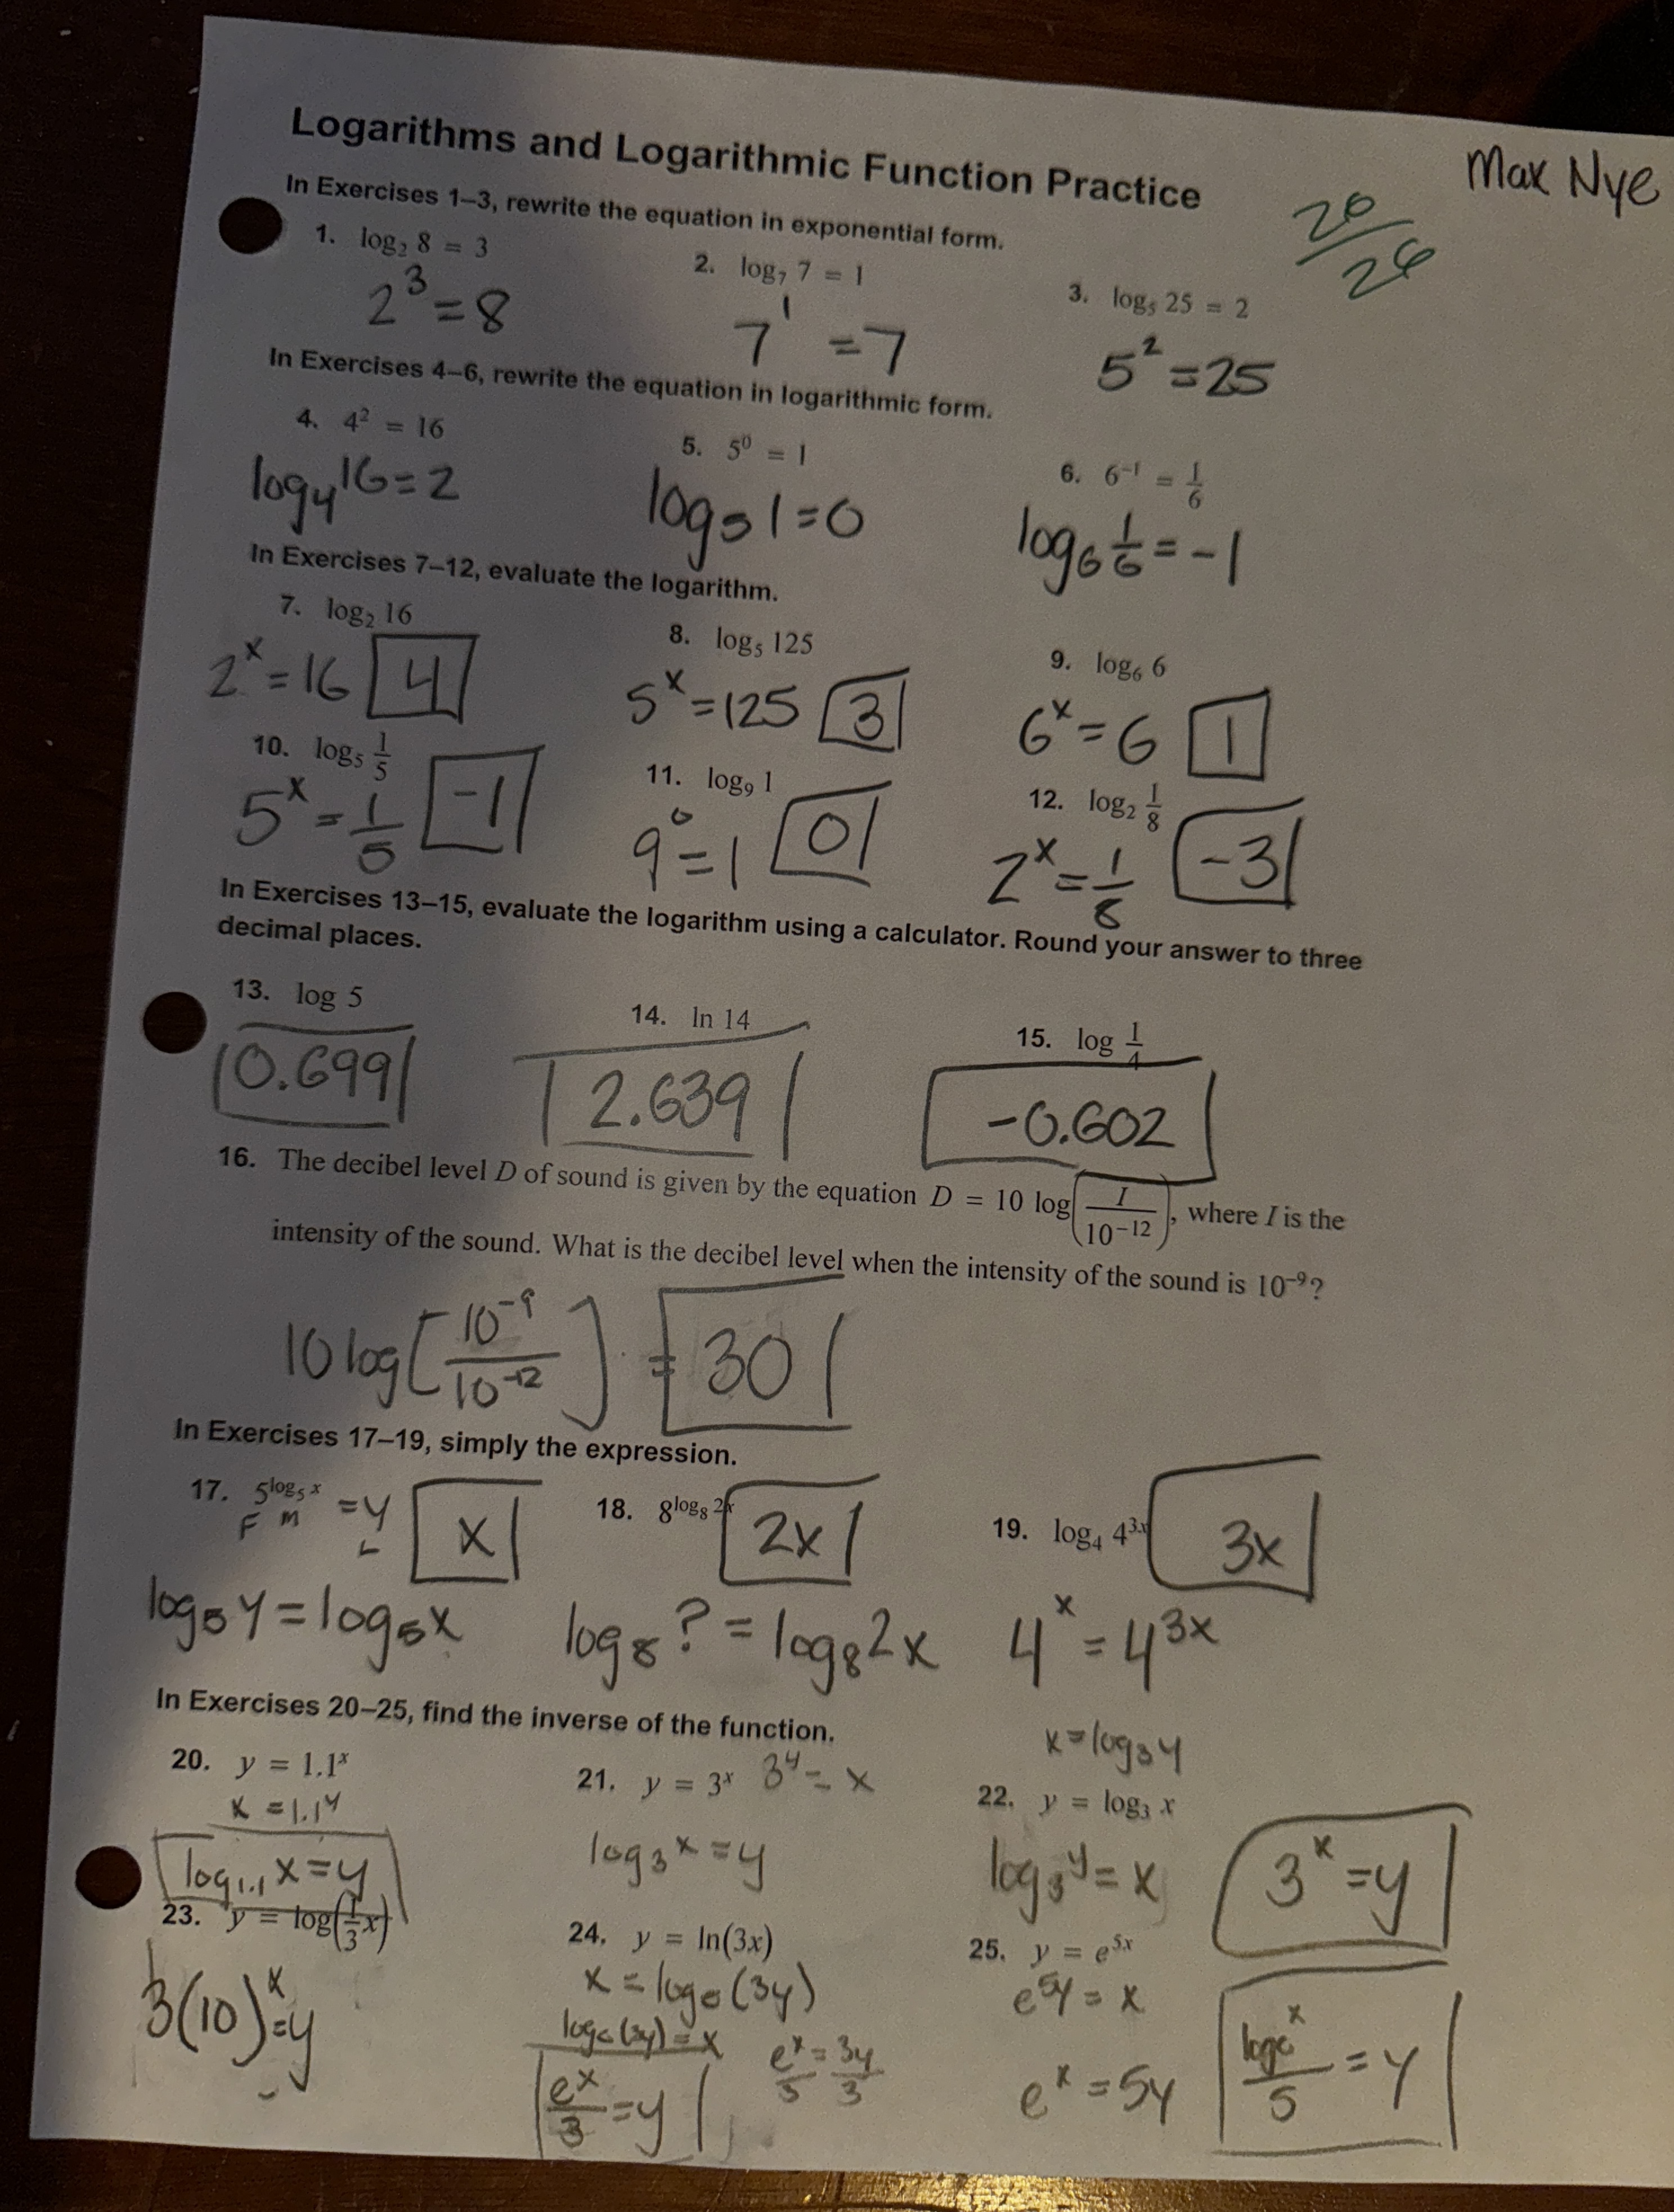 Logarithms and Logarithmic Function Practice
Max Nye
In Exercises 1–3, rewrite the equation in exponential form.
1. log₂ 8 = 3
2. log₇ 7 = 1
3. log₅ 25 = 2
2³ = 8
7¹ = 7
5² = 25
In Exercises 4–6, rewrite the equation in logarithmic form.
4. 4² = 16
5. 5⁰ = 1
6. 6⁻¹ = 1/6
log₄ 16 = 2
log₅ 1 = 0
log₆ 1/6 = -1
In Exercises 7–12, evaluate the logarithm.
7. log₂ 16
8. log₅ 125
9. log₆ 6
2ˣ = 16 4
5ˣ = 125 3
6ˣ = 6 1
10. log₅ 1/5
11. log₉ 1
12. log₂ 1/8
5ˣ = 1/5 -1
9⁰ = 1 0
2ˣ = 1/8 -3
In Exercises 13–15, evaluate the logarithm using a calculator. Round your answer to three
decimal places.
13. log 5
14. ln 14
15. log 1/4
0.699
2.639
-0.602
16. The decibel level D of sound is given by the equation D = 10 log(I/10⁻¹²), where I is the
intensity of the sound. What is the decibel level when the intensity of the sound is 10⁻⁹?
10 log[10⁻⁹/10⁻¹²] = 30
In Exercises 17–19, simply the expression.
17. 5^(log₅ x) = y x
F M L
18. 8^(log₈ 2x) 2x
19. log₄ 4³ˣ 3x
log₅ y = log₅ x
log₈ ? = log₈ 2x
4ˣ = 4³ˣ
In Exercises 20–25, find the inverse of the function.
20. y = 1.1ˣ
x = 1.1ʸ
log₁.₁ x = y
21. y = 3ˣ 3ʸ = x
log₃ x = y
x = log₃ y
22. y = log₃ x
log₃ y = x
3ˣ = y
23. y = log(1/3 x)
3(10)ˣ = y
24. y = ln(3x)
x = logₑ(3y)
logₑ(3y) = x
eˣ/3 = 3y/3
eˣ/3 = y
25. y = e⁵ˣ
e⁵ʸ = x
eˣ = 5y
logₑ x/5 = y